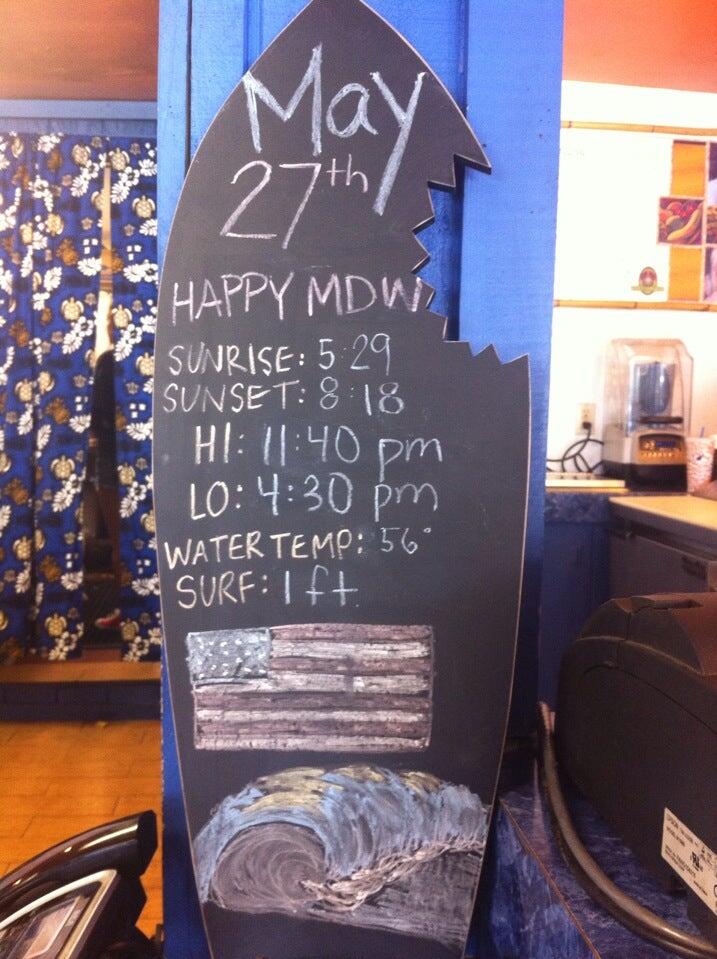 May
27th
HAPPY MDW
SUNRISE: 5:29
SUNSET: 8:18
HI: 11:40 pm
LO: 4:30 pm
WATER TEMP: 56°
SURF: 1 ft.